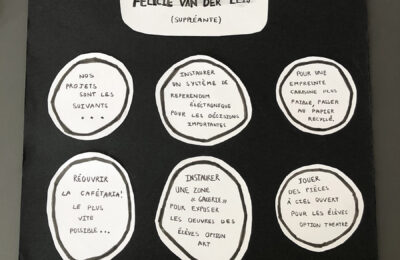 FELICIE VAN DER
(SUPPLÉANTE)
NOS
PROJETS
SONT LES
SUIVANTS
...
INSTAURER
UN SYSTÈME DE
REFERENDUM
ÉLECTRONIQUE
POUR LES DÉCISIONS
IMPORTANTES
POUR UNE
EMPREINTE
CARBONE PLUS
FAIBLE, PASSER
AU PAPIER
RECYCLÉ.
RÉOUVRIR
LA CAFÉTARIA!
LE PLUS
VITE
POSSIBLE...
INSTAURER
UNE ZONE
« GALERIE »
POUR EXPOSER
LES OEUVRES DES
ÉLÈVES OPTION
ART
JOUER
DES PIÈCES
À CIEL OUVERT
POUR LES ÉLÈVES
OPTION THEATRE